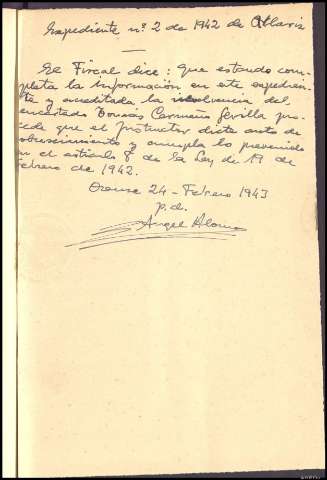 Expediente nº 2 de 1942 de Allariz
El Fiscal dice: que estando com-
pleta la información en este expedien-
te y acreditada la insolvencia del
encartado Tomás Carmeño Sevilla pro-
cede que el Instructor dicte auto de
sobreseimiento y cumpla lo prevenido
en el artículo 8 de la Ley de 19 de
febrero de 1942.
Orense 24 - Febrero 1943
p.d.
Angel Alonso